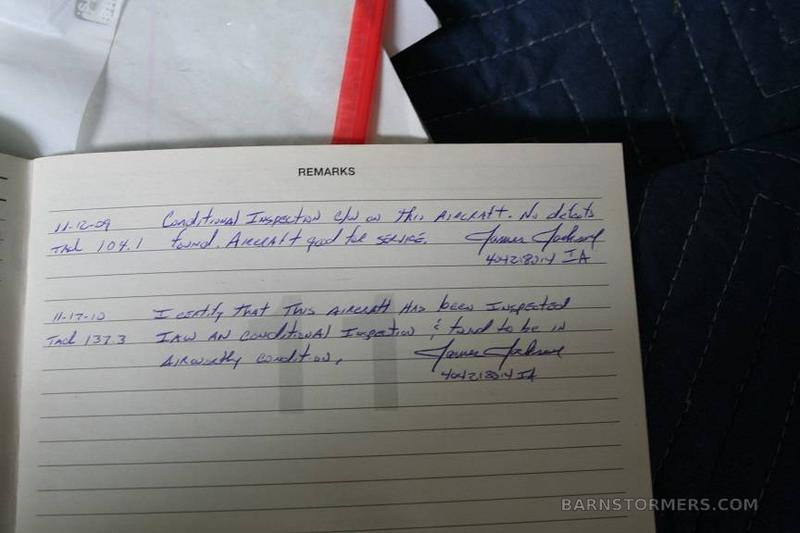 REMARKS
11-12-09 Conditional Inspection c/w on this Aircraft. No defects
Tach 104.1 found. Aircraft good for service. James Jackson
404218014 IA
11-17-10 I certify that this Aircraft has been inspected
Tach 137.3 IAW AN Conditional Inspection & found to be in
Airworthy condition, James Jackson
404218014 IA
BARNSTORMERS.COM